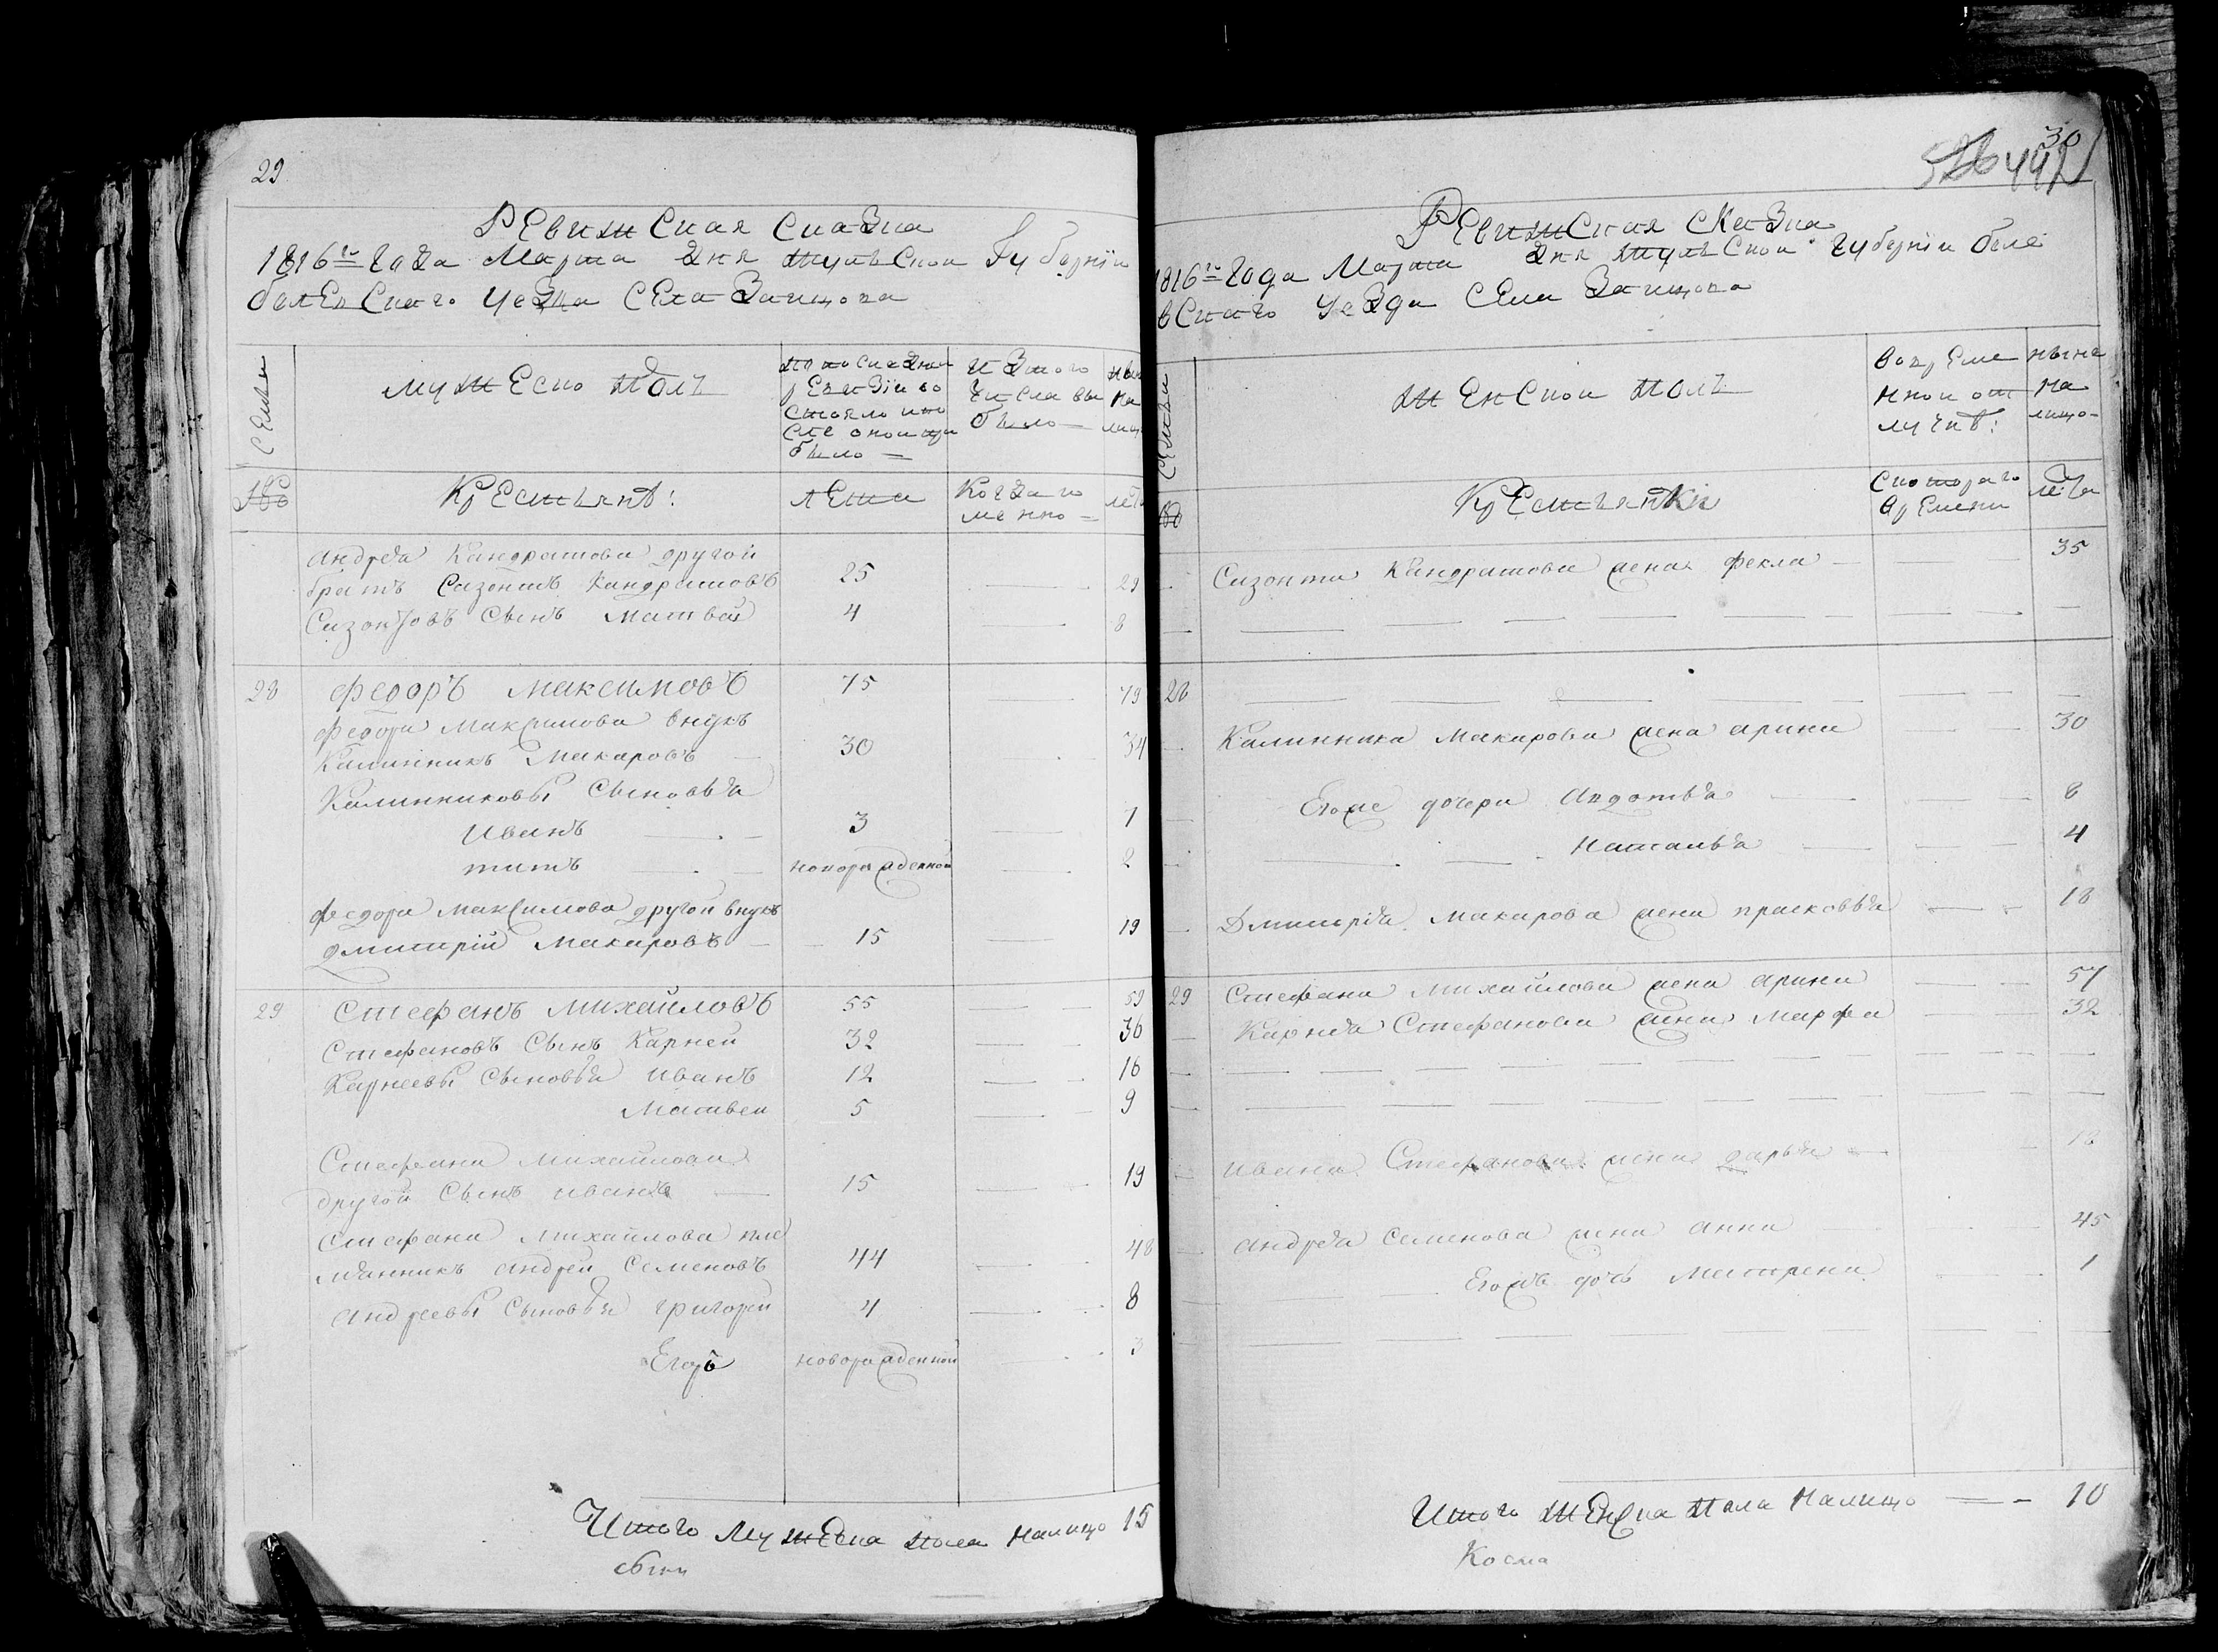 29
РЕвижСкая Сказка
1816го Года Марта Дня тульСкои Губернiи
белевСкаго уеЗда СЕла Заицова
СЕмьи
мужЕско полъ
по последнеи
рЕвиЗiи со
стояло и по
сле онои при
было
иЗ того
числа вы
было
ныне
на
лицо
№
КрЕстьянѣ:
лЕта
Когда и
менно
лета
андрѣа Кандрашова другой
братъ Сазонтъ Кандрашовъ 25 29
Сазонтовъ Сынъ Матвей 4 8
28 Федоръ Максимовъ 75 79
Федора Максимова внукъ
Калинникъ Макаровъ 30 34
Калинниковы Сыновьѣ
Иванъ 3 7
титъ новорожденной 2
Федора Максимова другой внукъ
дмитрiй Макаровъ 15 19
29 Стефанъ Михайловъ 55 59
Стефановъ Сынъ Карней 32 36
Карнеевы Сыновьѣ Иванъ 12 16
Матвеи 5 9
Стефана Михайлова
другой Сынъ иванъ 15 19
Стефана Михайлова пле
мѣнникъ андрей Семеновъ 44 48
андреевы Сыновьѣ григорей 4 8
Егоръ новорожденной 3
Итого мужЕска пола налицо 15
30
РЕвижСкая СкаЗка
1816го Года Марта Дня тульСкои губернiи беле
вСкаго уеЗда СЕла Заицова
СЕмьи
жЕнСкои полъ
во врЕме
ннои от
лучкѣ:
ныне
на
лицо
№
КрЕстьянки
С котораго
врЕмени
лета
Сазонта Кандрашова жена фекла 35
28
Калинника Макарова жена арина 30
Егоже дочери Авдотьѣ 8
Натальѣ 4
Дмитрѣа Макарова жена прасковьѣ 18
29 Стефана Михайлова жена арина 57
Карнѣа Стефанова жена Марфа 32
ивана Стефанова жена дарьѣ 18
андрѣа Семенова жена анна 45
Егожъ дочь Матрена 1
Итого жЕнска пола налицо 10